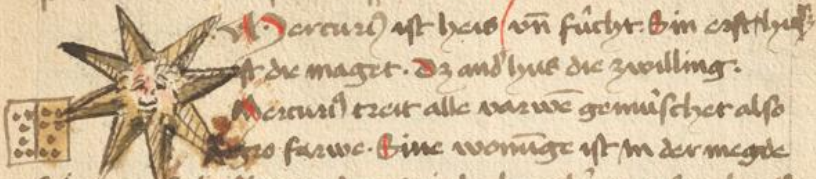 Mercuri9 ist heis vn̄ fůcht. Sin erst hus
ist die maget. dz and' hus die zwilling.
Mercuri9 treit alle varwē gemůschet also
farwe. Sine wonūge ist in der megde